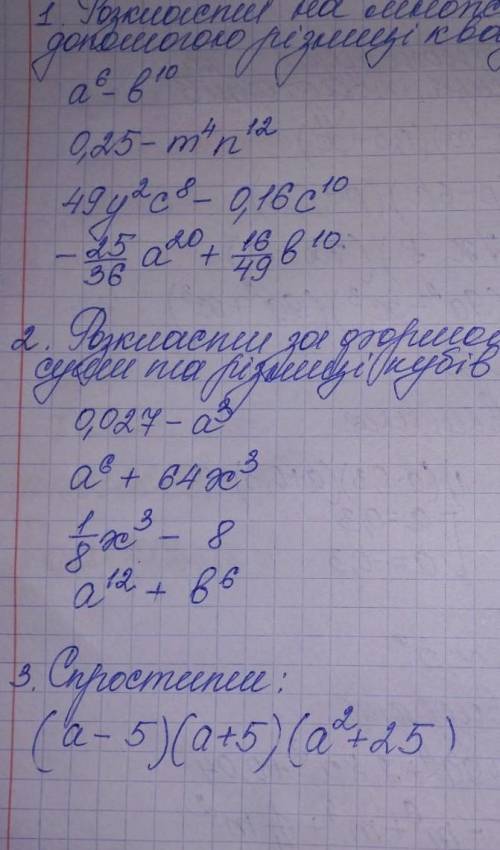 1. Розкласти на множ
допомогою різниці ква
a⁶ - b¹⁰
0,25 - m⁴n¹²
49y²c⁸ - 0,16c¹⁰
-25/36 a²⁰ + 16/49 b¹⁰.
2. Розкласти за формо
суми та різниці кубів
0,027 - a³
a⁶ + 64x³
1/8 x³ - 8
a¹² + b⁶
3. Спростити:
(a - 5)(a + 5)(a² + 25)